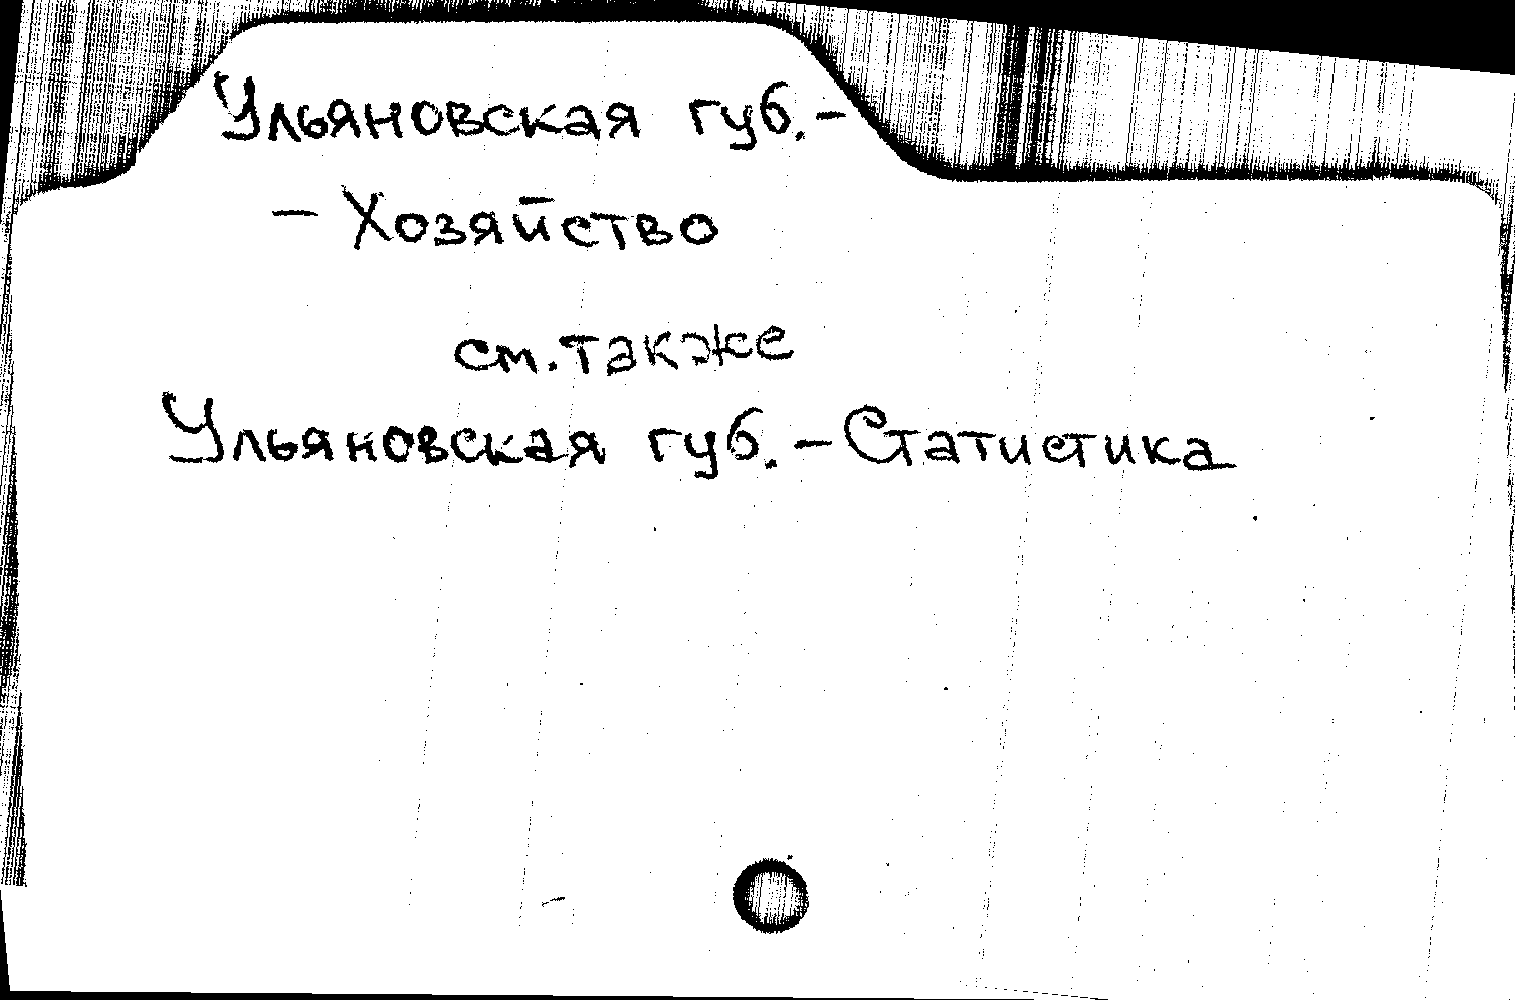 Ульяновская губ.-
- Хозяйство
см. также
Ульяновская губ. - Статистика